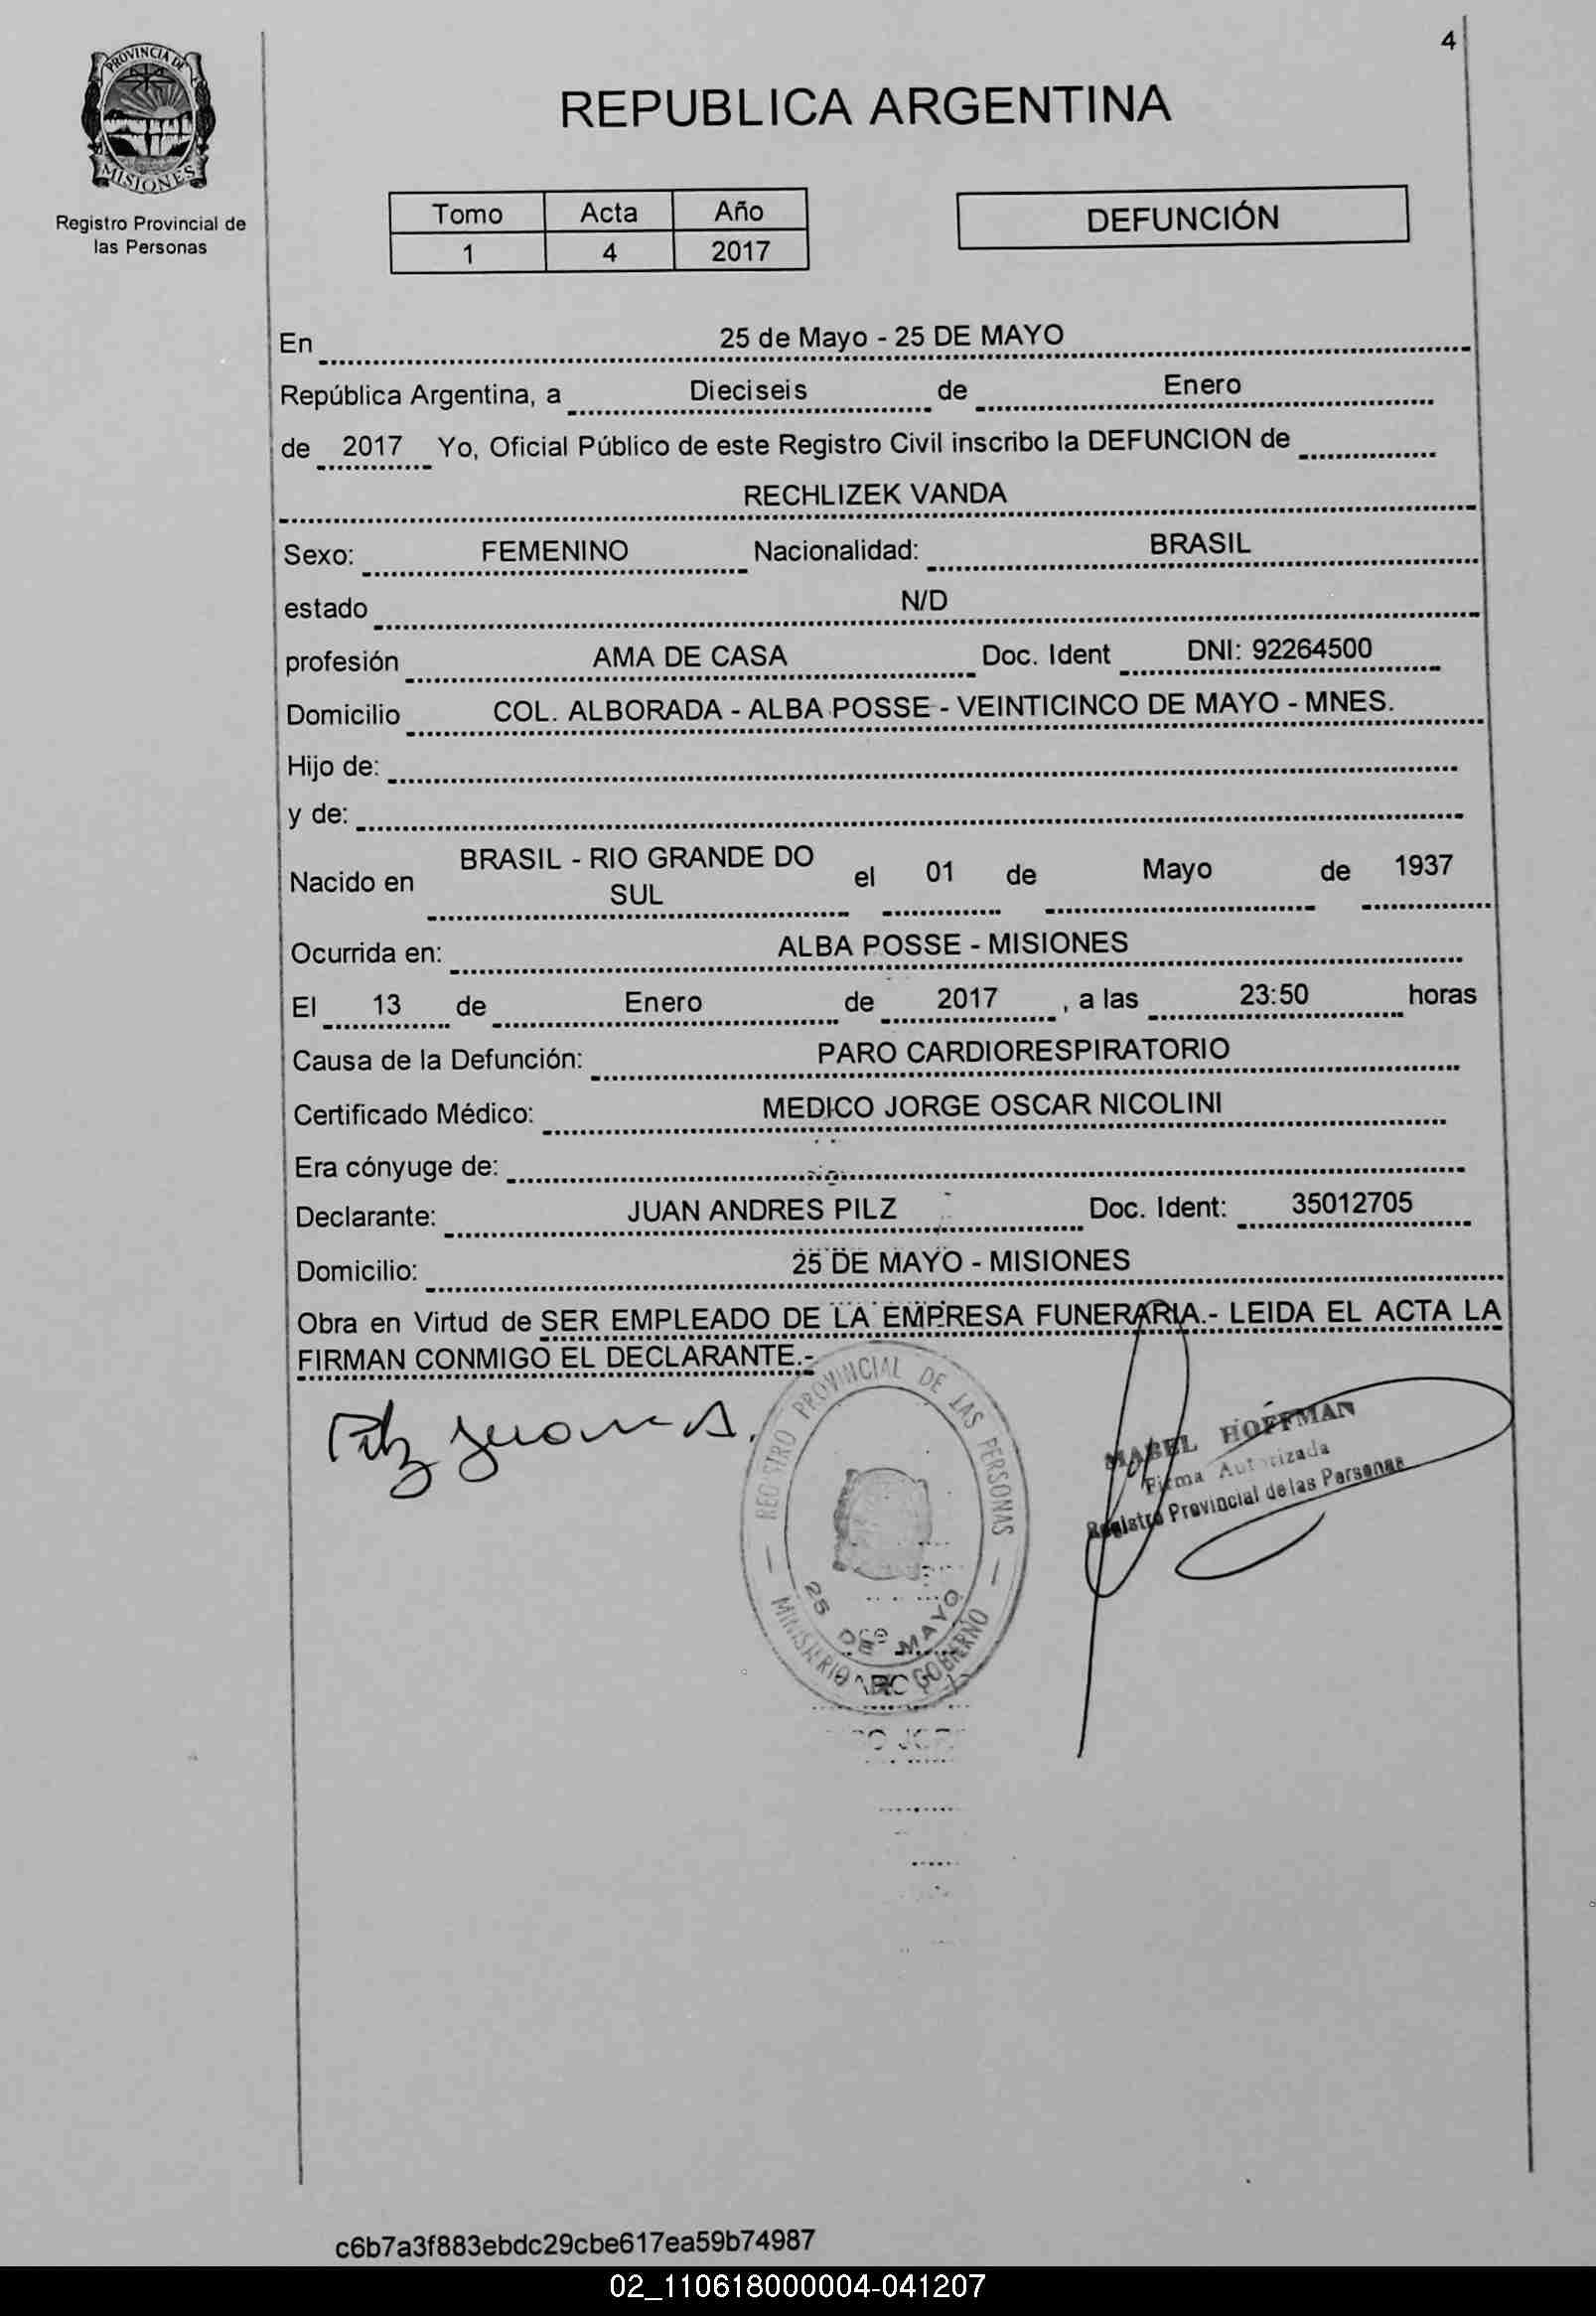 4
PROVINCIA DE
MISIONES
Registro Provincial de
las Personas
REPUBLICA ARGENTINA
Tomo Acta Año
1 4 2017
DEFUNCIÓN
En 25 de Mayo - 25 DE MAYO
República Argentina, a Dieciseis de Enero
de 2017 Yo, Oficial Público de este Registro Civil inscribo la DEFUNCION de
RECHLIZEK VANDA
Sexo: FEMENINO Nacionalidad: BRASIL
estado N/D
profesión AMA DE CASA Doc. Ident DNI: 92264500
Domicilio COL. ALBORADA - ALBA POSSE - VEINTICINCO DE MAYO - MNES.
Hijo de:
y de:
Nacido en BRASIL - RIO GRANDE DO SUL el 01 de Mayo de 1937
Ocurrida en: ALBA POSSE - MISIONES
El 13 de Enero de 2017 , a las 23:50 horas
Causa de la Defunción: PARO CARDIORESPIRATORIO
Certificado Médico: MEDICO JORGE OSCAR NICOLINI
Era cónyuge de:
Declarante: JUAN ANDRES PILZ Doc. Ident: 35012705
Domicilio: 25 DE MAYO - MISIONES
Obra en Virtud de SER EMPLEADO DE LA EMPRESA FUNERARIA.- LEIDA EL ACTA LA
FIRMAN CONMIGO EL DECLARANTE.-
Pilz Juan A.
REGISTRO PROVINCIAL DE LAS PERSONAS
25 DE MAYO
MINISTERIO DE GOBIERNO
MABEL HOFFMAN
Firma Autorizada
Registro Provincial de las Personas
c6b7a3f883ebdc29cbe617ea59b74987
02_110618000004-041207